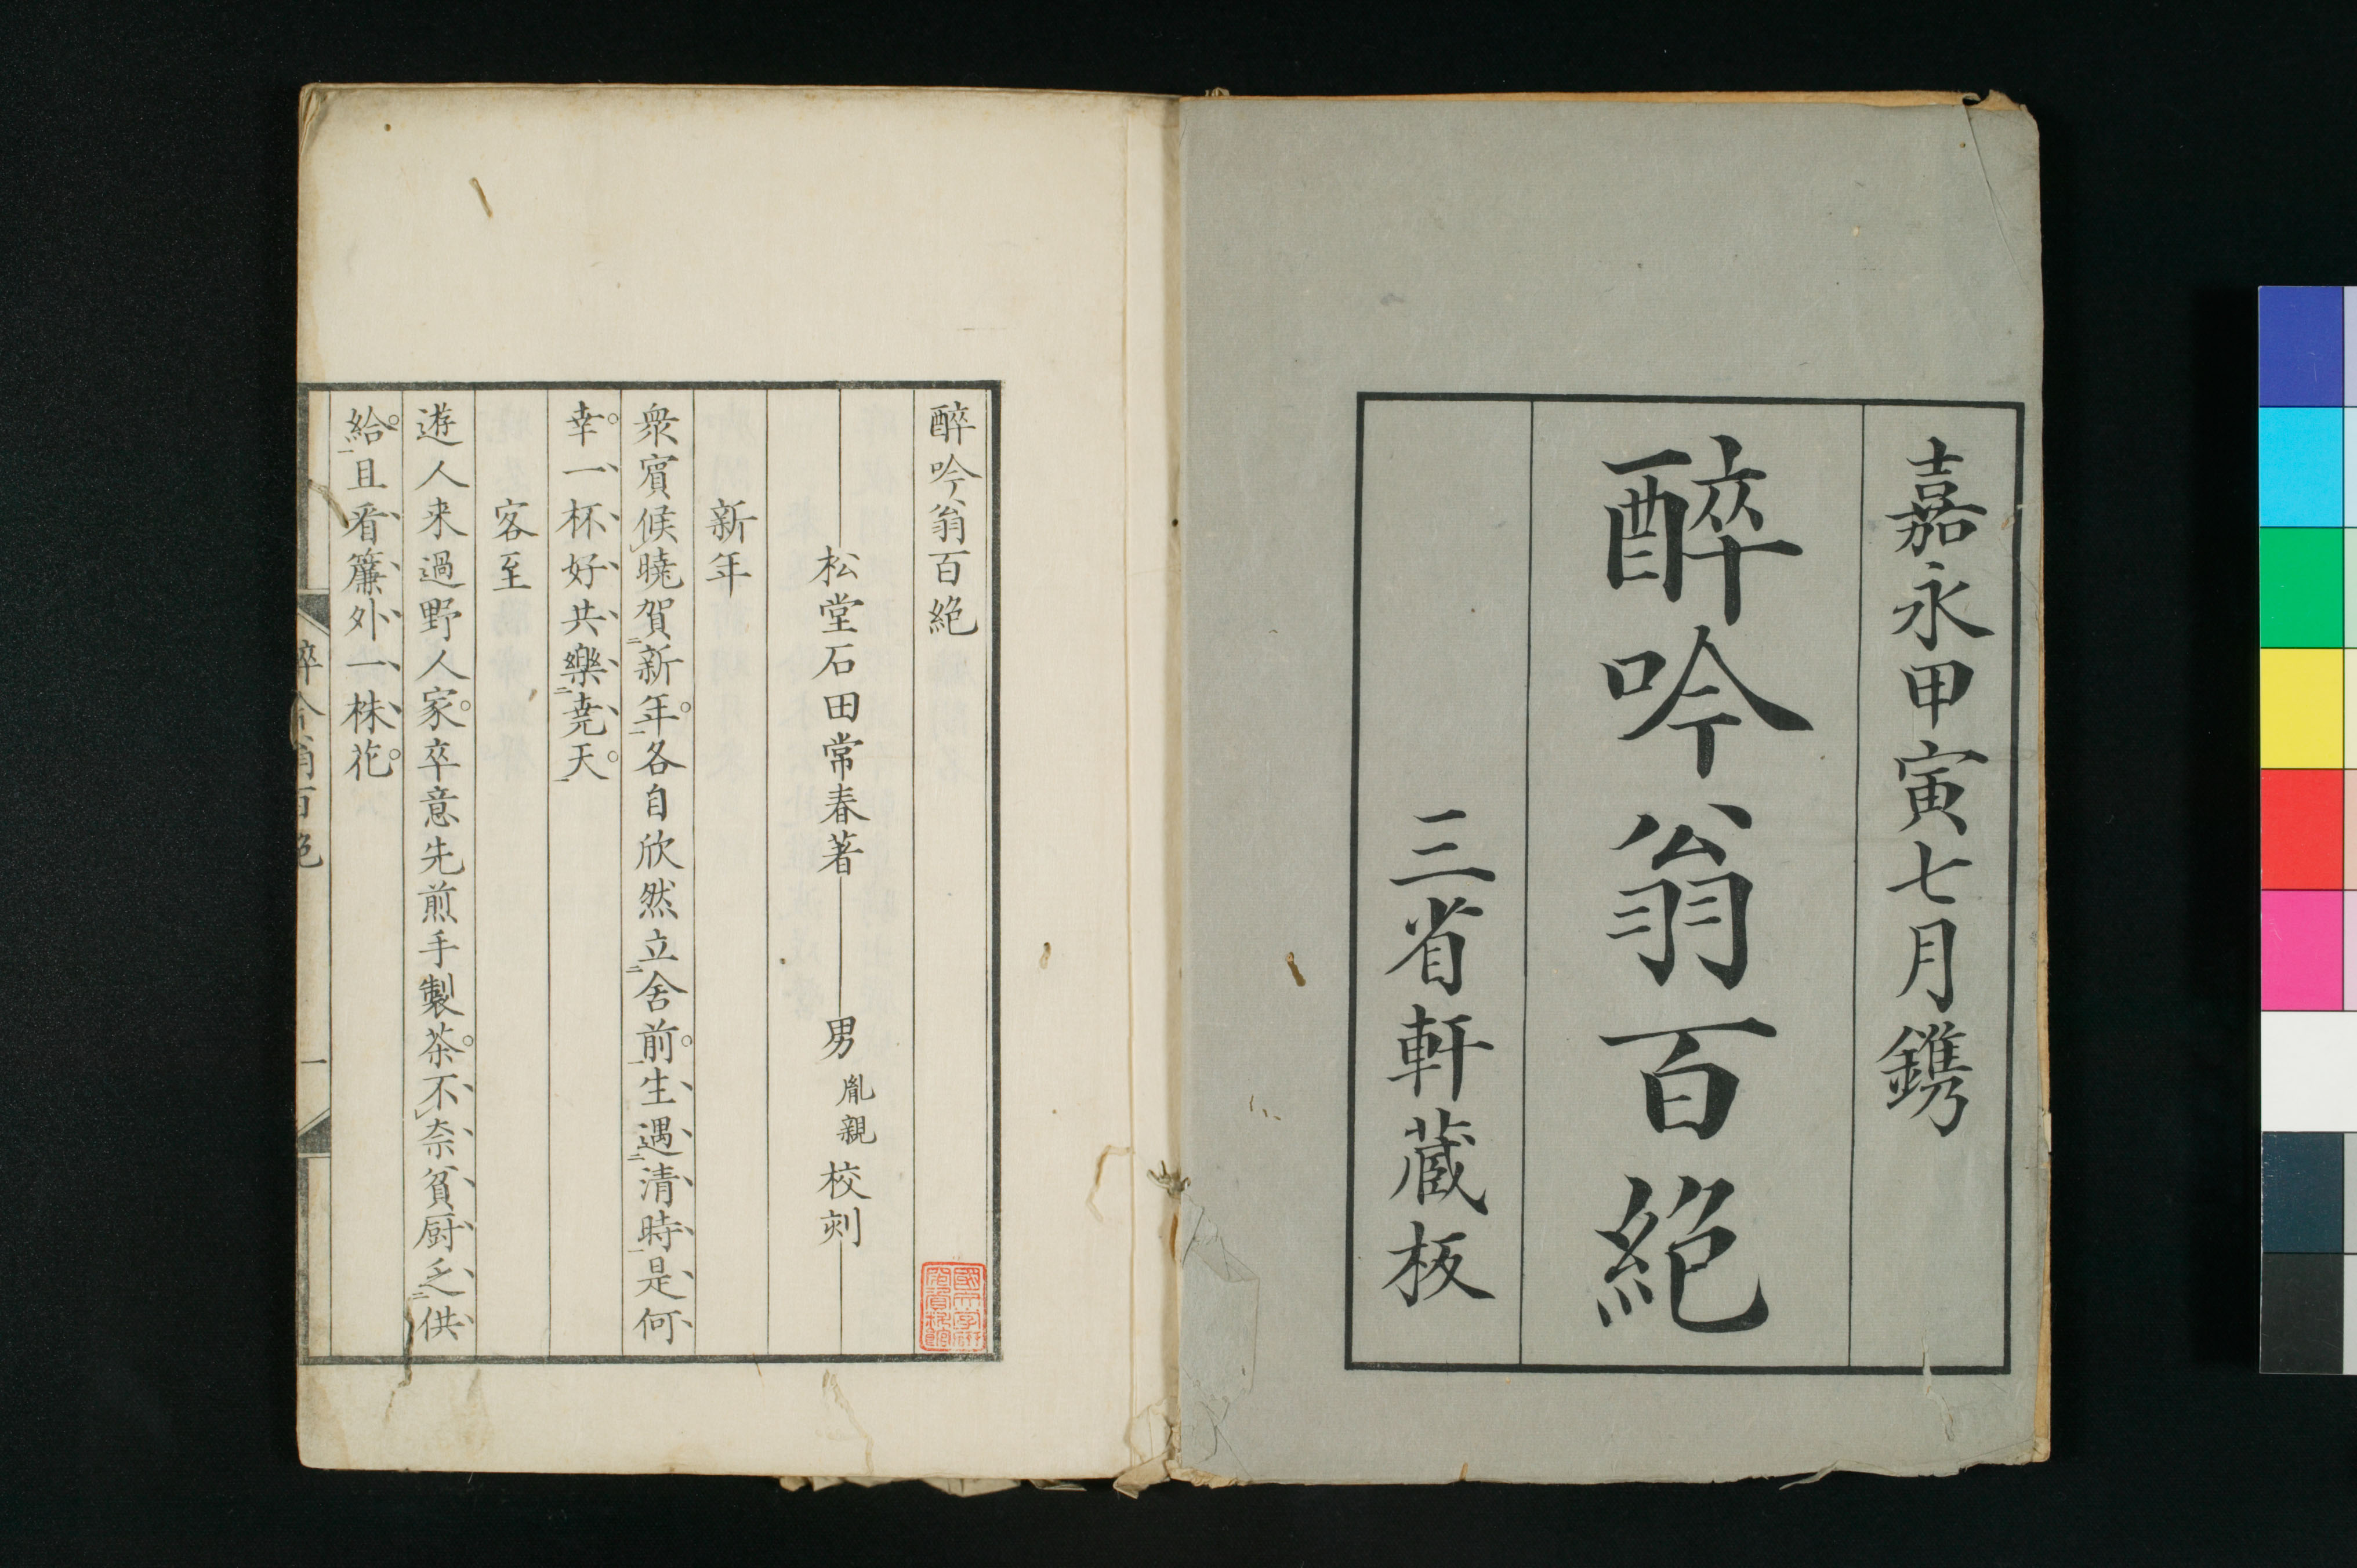 嘉永甲寅七月鐫
醉吟翁百絶
三省軒蔵板
醉吟翁百絶
松堂石田常春著 男 胤親 校刻
新年
衆賓候曉賀新年各自欣然立舍前生遇清時是何
幸一杯好共樂尭天
客至
遊人来過野人家卒意先煎手製茶不奈貧厨乏供
給且看簾外一株花
醉吟翁百絶 一